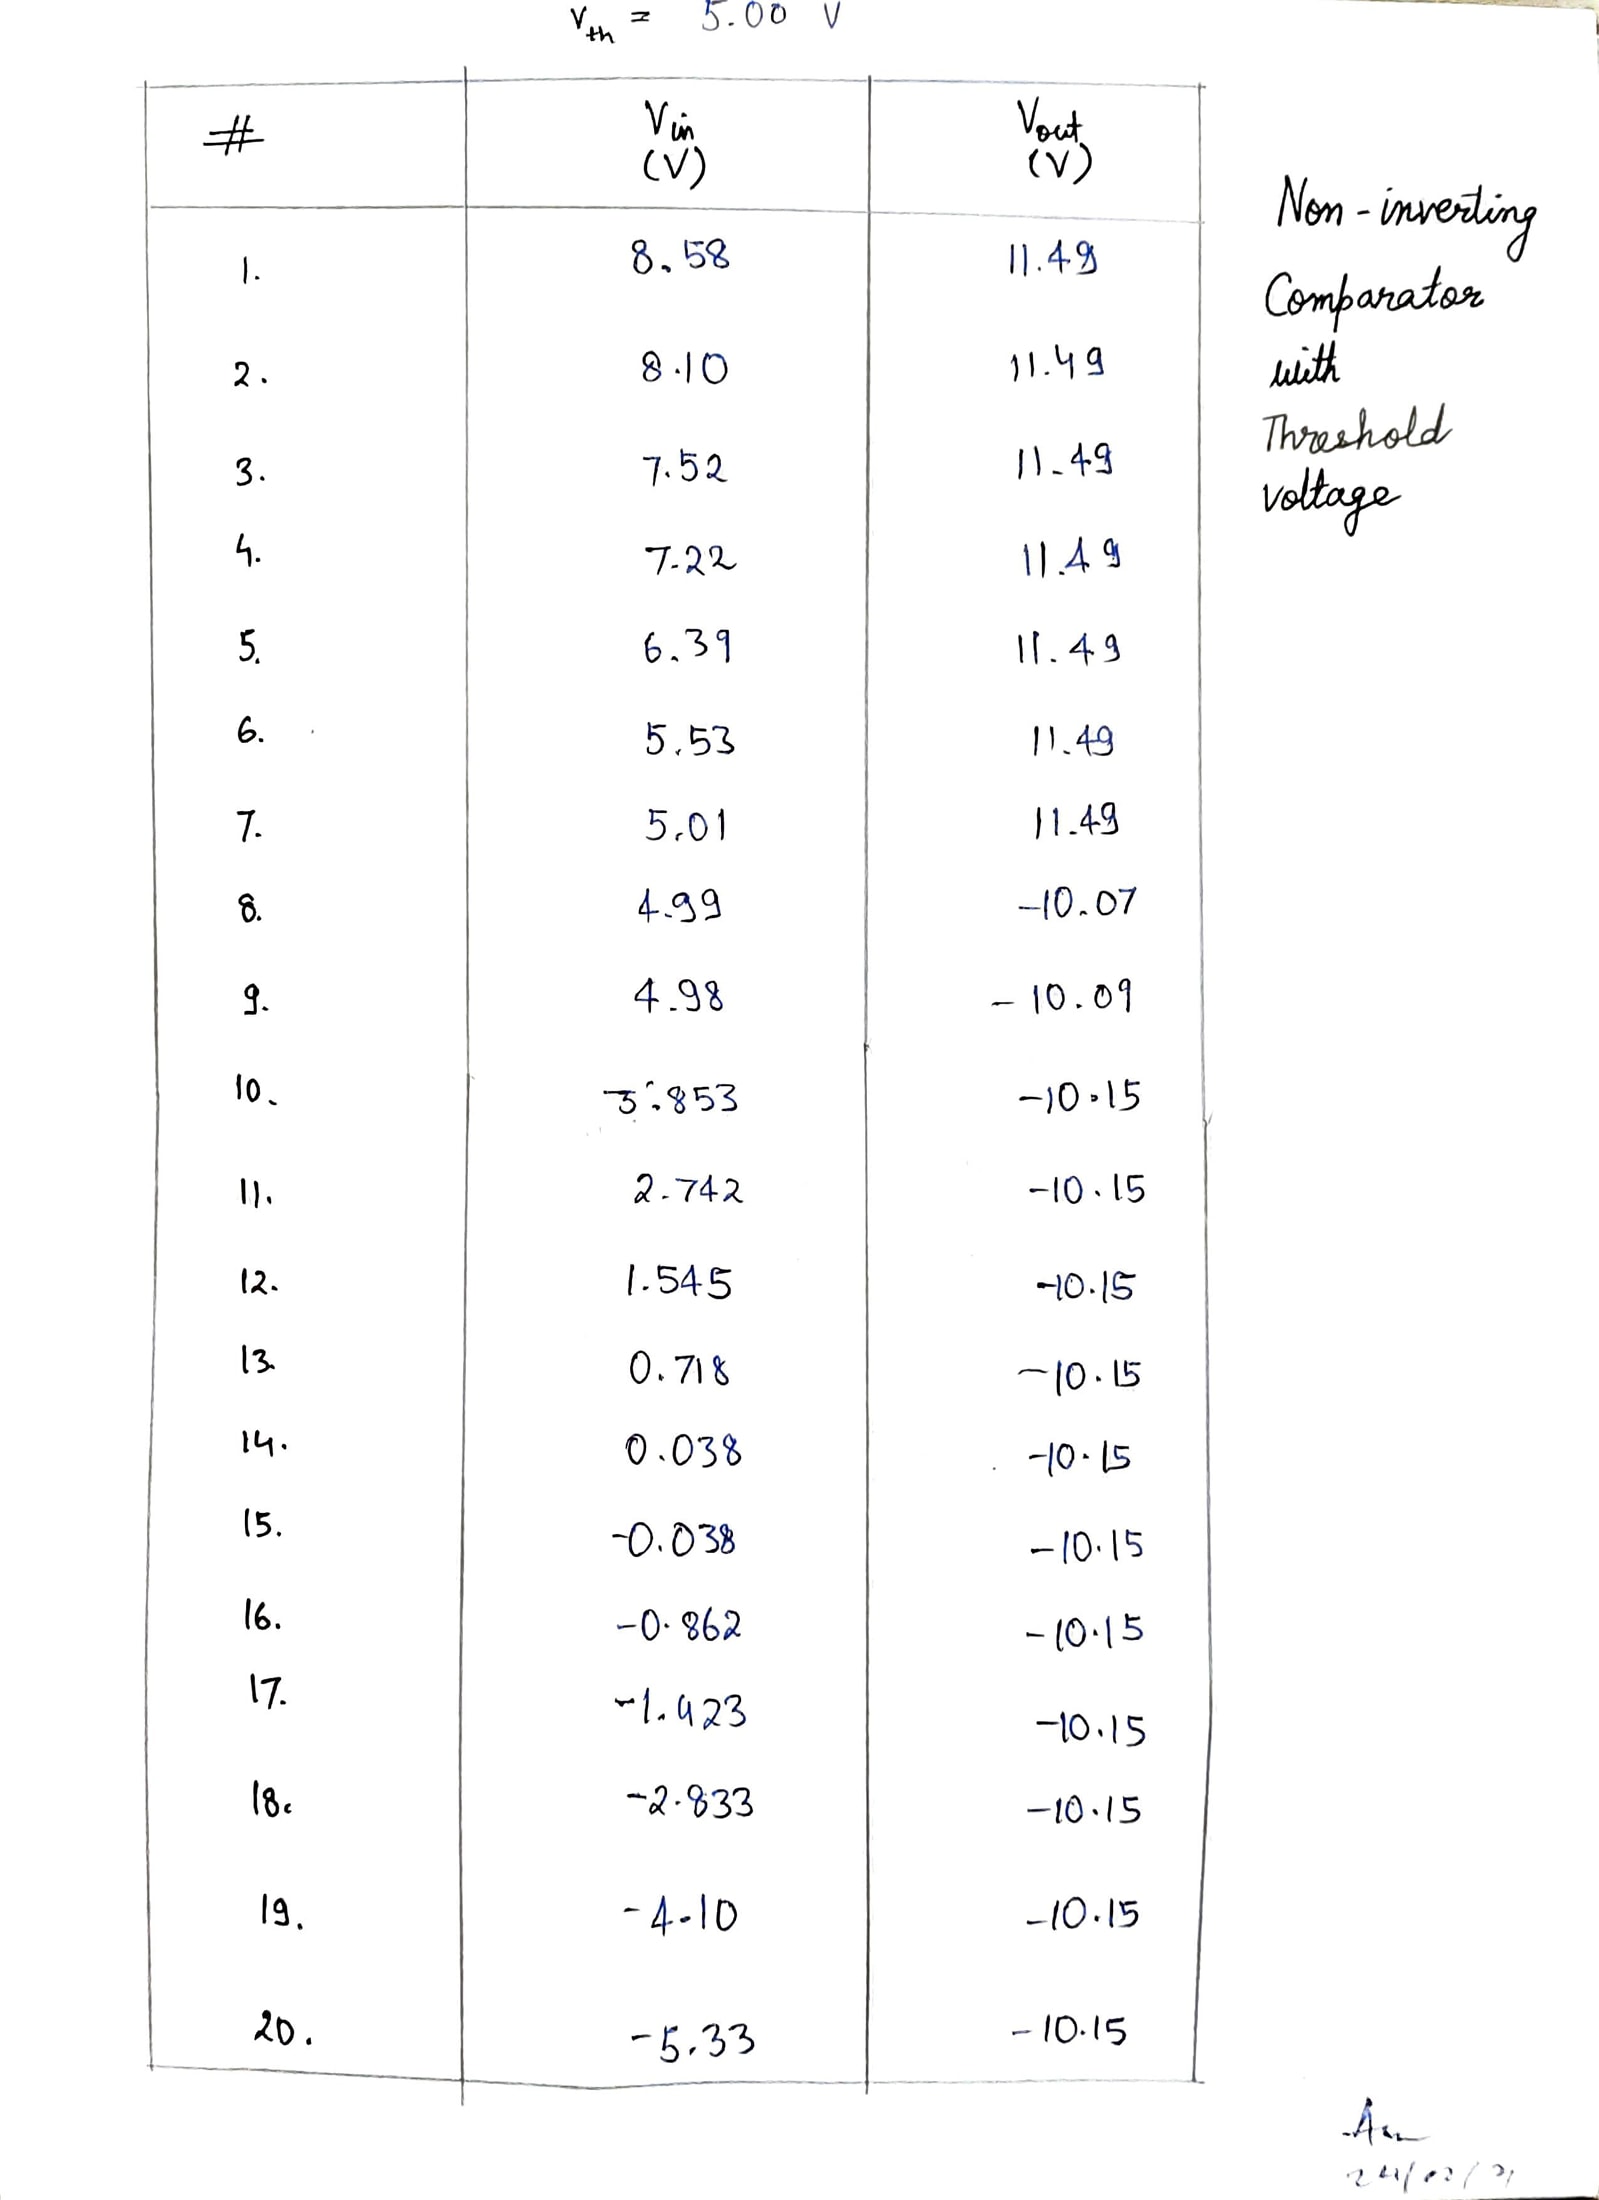 Vth = 5.00 V
# Vin (V) Vout (V)
1. 8.58 11.49
2. 8.10 11.49
3. 7.52 11.49
4. 7.22 11.49
5. 6.39 11.49
6. 5.53 11.49
7. 5.01 11.49
8. 4.99 -10.07
9. 4.98 -10.09
10. 3.853 -10.15
11. 2.742 -10.15
12. 1.545 -10.15
13. 0.718 -10.15
14. 0.038 -10.15
15. -0.038 -10.15
16. -0.862 -10.15
17. -1.423 -10.15
18. -2.833 -10.15
19. -4.10 -10.15
20. -5.33 -10.15
Non-inverting
Comparator
with
Threshold
voltage